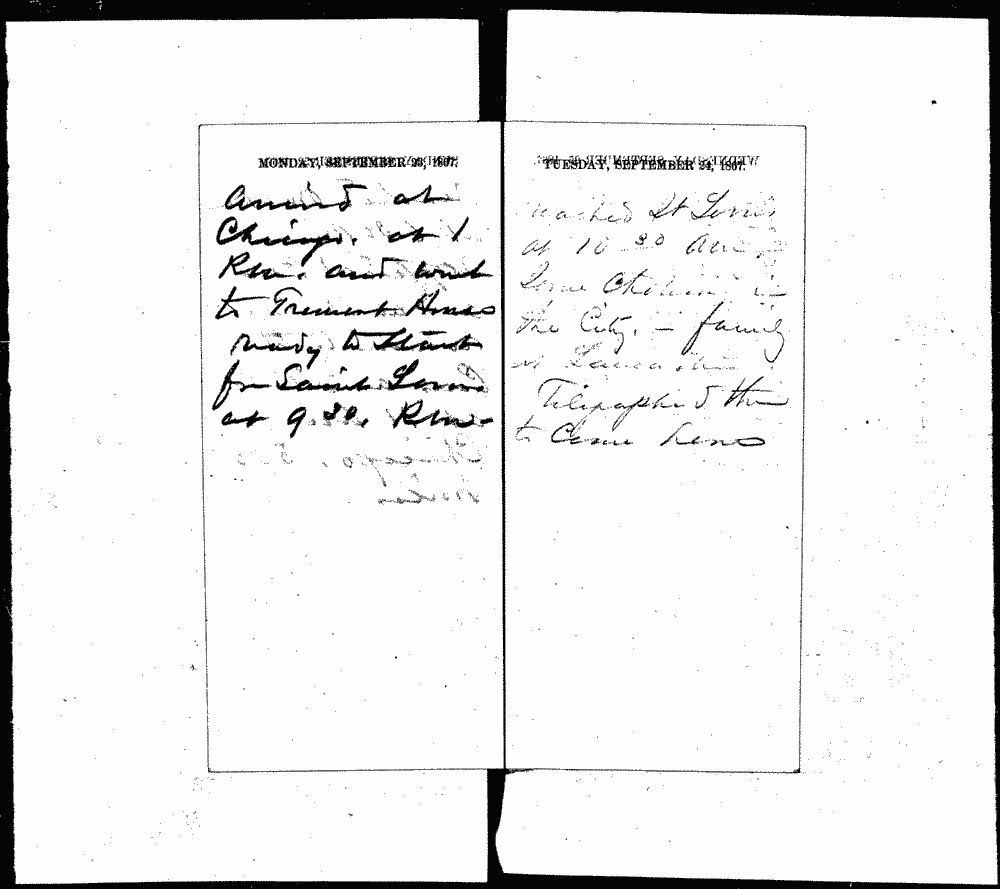 MONDAY, SEPTEMBER 23, 1867.
Arrived at
Chicago. at 1
P.m. and went
to Tremont House
ready to Start
for Saint Louis
at 9 30. P.m.
TUESDAY, SEPTEMBER 24, 1867.
reached St Louis
at 10 30 am
Some Cholera in
the City. - family
at Lancaster
Telegraphed them
to Come home